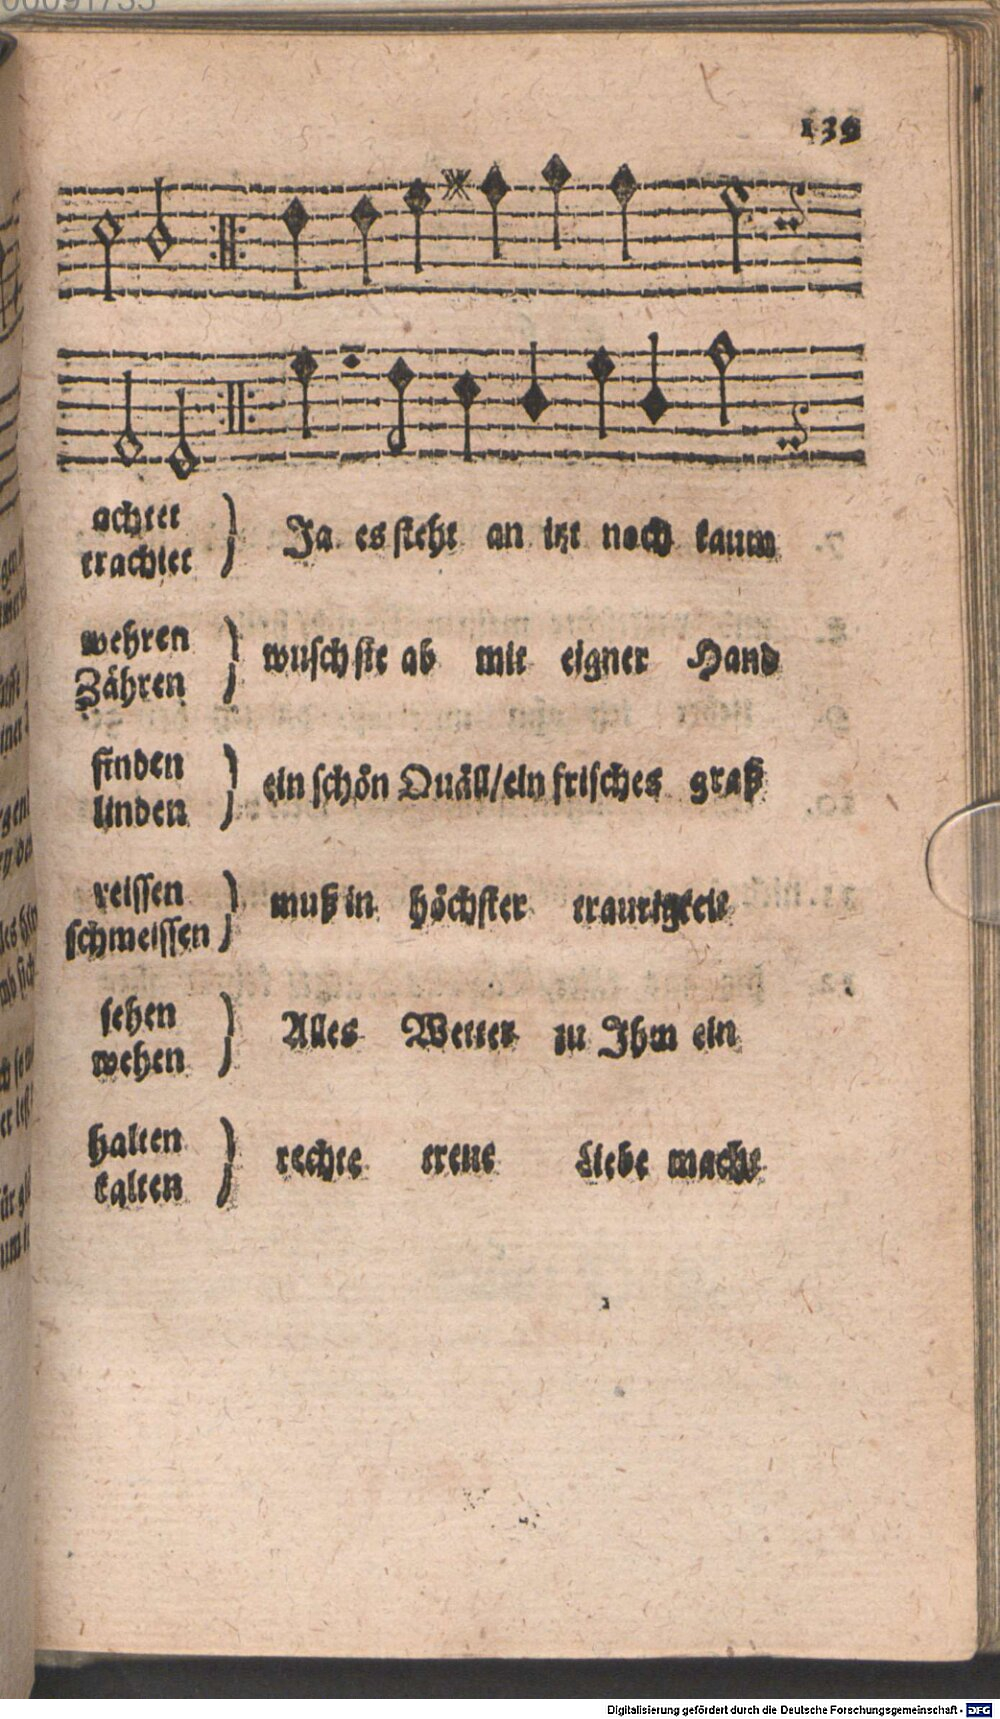 139
achtet
trachtet
Ja es steht an itzt noch kaum
wehren
Zähren
wusch sie ab mit eigner Hand
finden
linden
ein schön Quäll/ein frisches graß
reissen
schmeissen
muß in höchster traurigkeit
sehen
wehen
Alles Wetter zu Ihm ein
halten
kalten
rechte treue Liebe macht
Digitalisierung gefördert durch die Deutsche Forschungsgemeinschaft - DFG